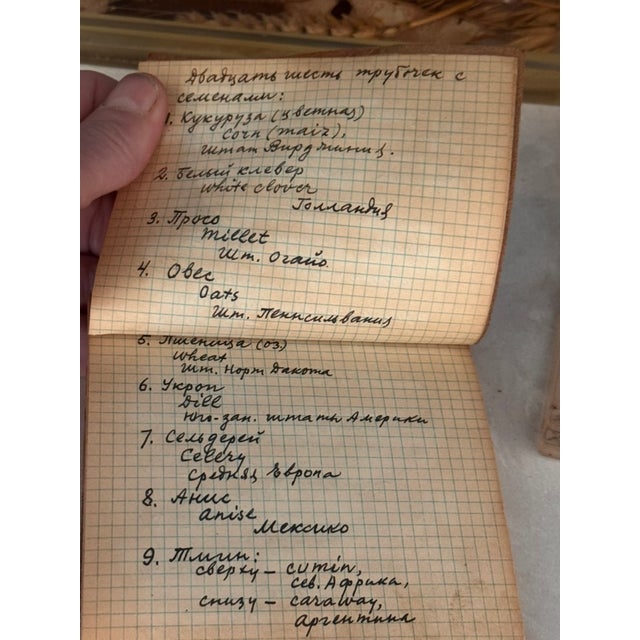 Двадцать шесть трубочек с
семенами:
1. Кукуруза (цветная)
Corn (maiz),
штат Вирджиния.
2. Белый клевер
white clover
Голландия
3. Просо
millet
шт. Огайо.
4. Овес
Oats
шт. Пенсильвания
5. Пшеница (оз)
Wheat
шт. Норт Дакота
6. Укроп
Dill
Юго-зап. штаты Америки
7. Сельдерей
Celery
Средняя Европа
8. Анис
anise
Мексико
9. Тмин:
сверху – cumin,
сев. Африка,
снизу – caraway,
аргентина